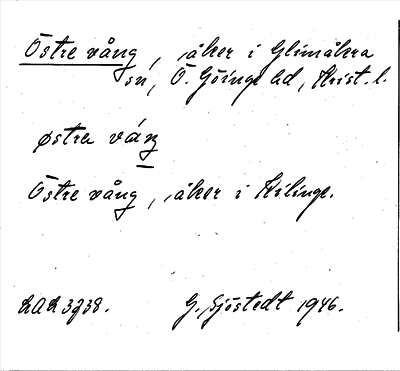 Östre vång, åker i Glimåkra
sn, Ö. Göinge hd, Krist. l.
østrə váŋ
Östre vång, åker i Hilinge.
LAL 3238.  G. Sjöstedt 1946.